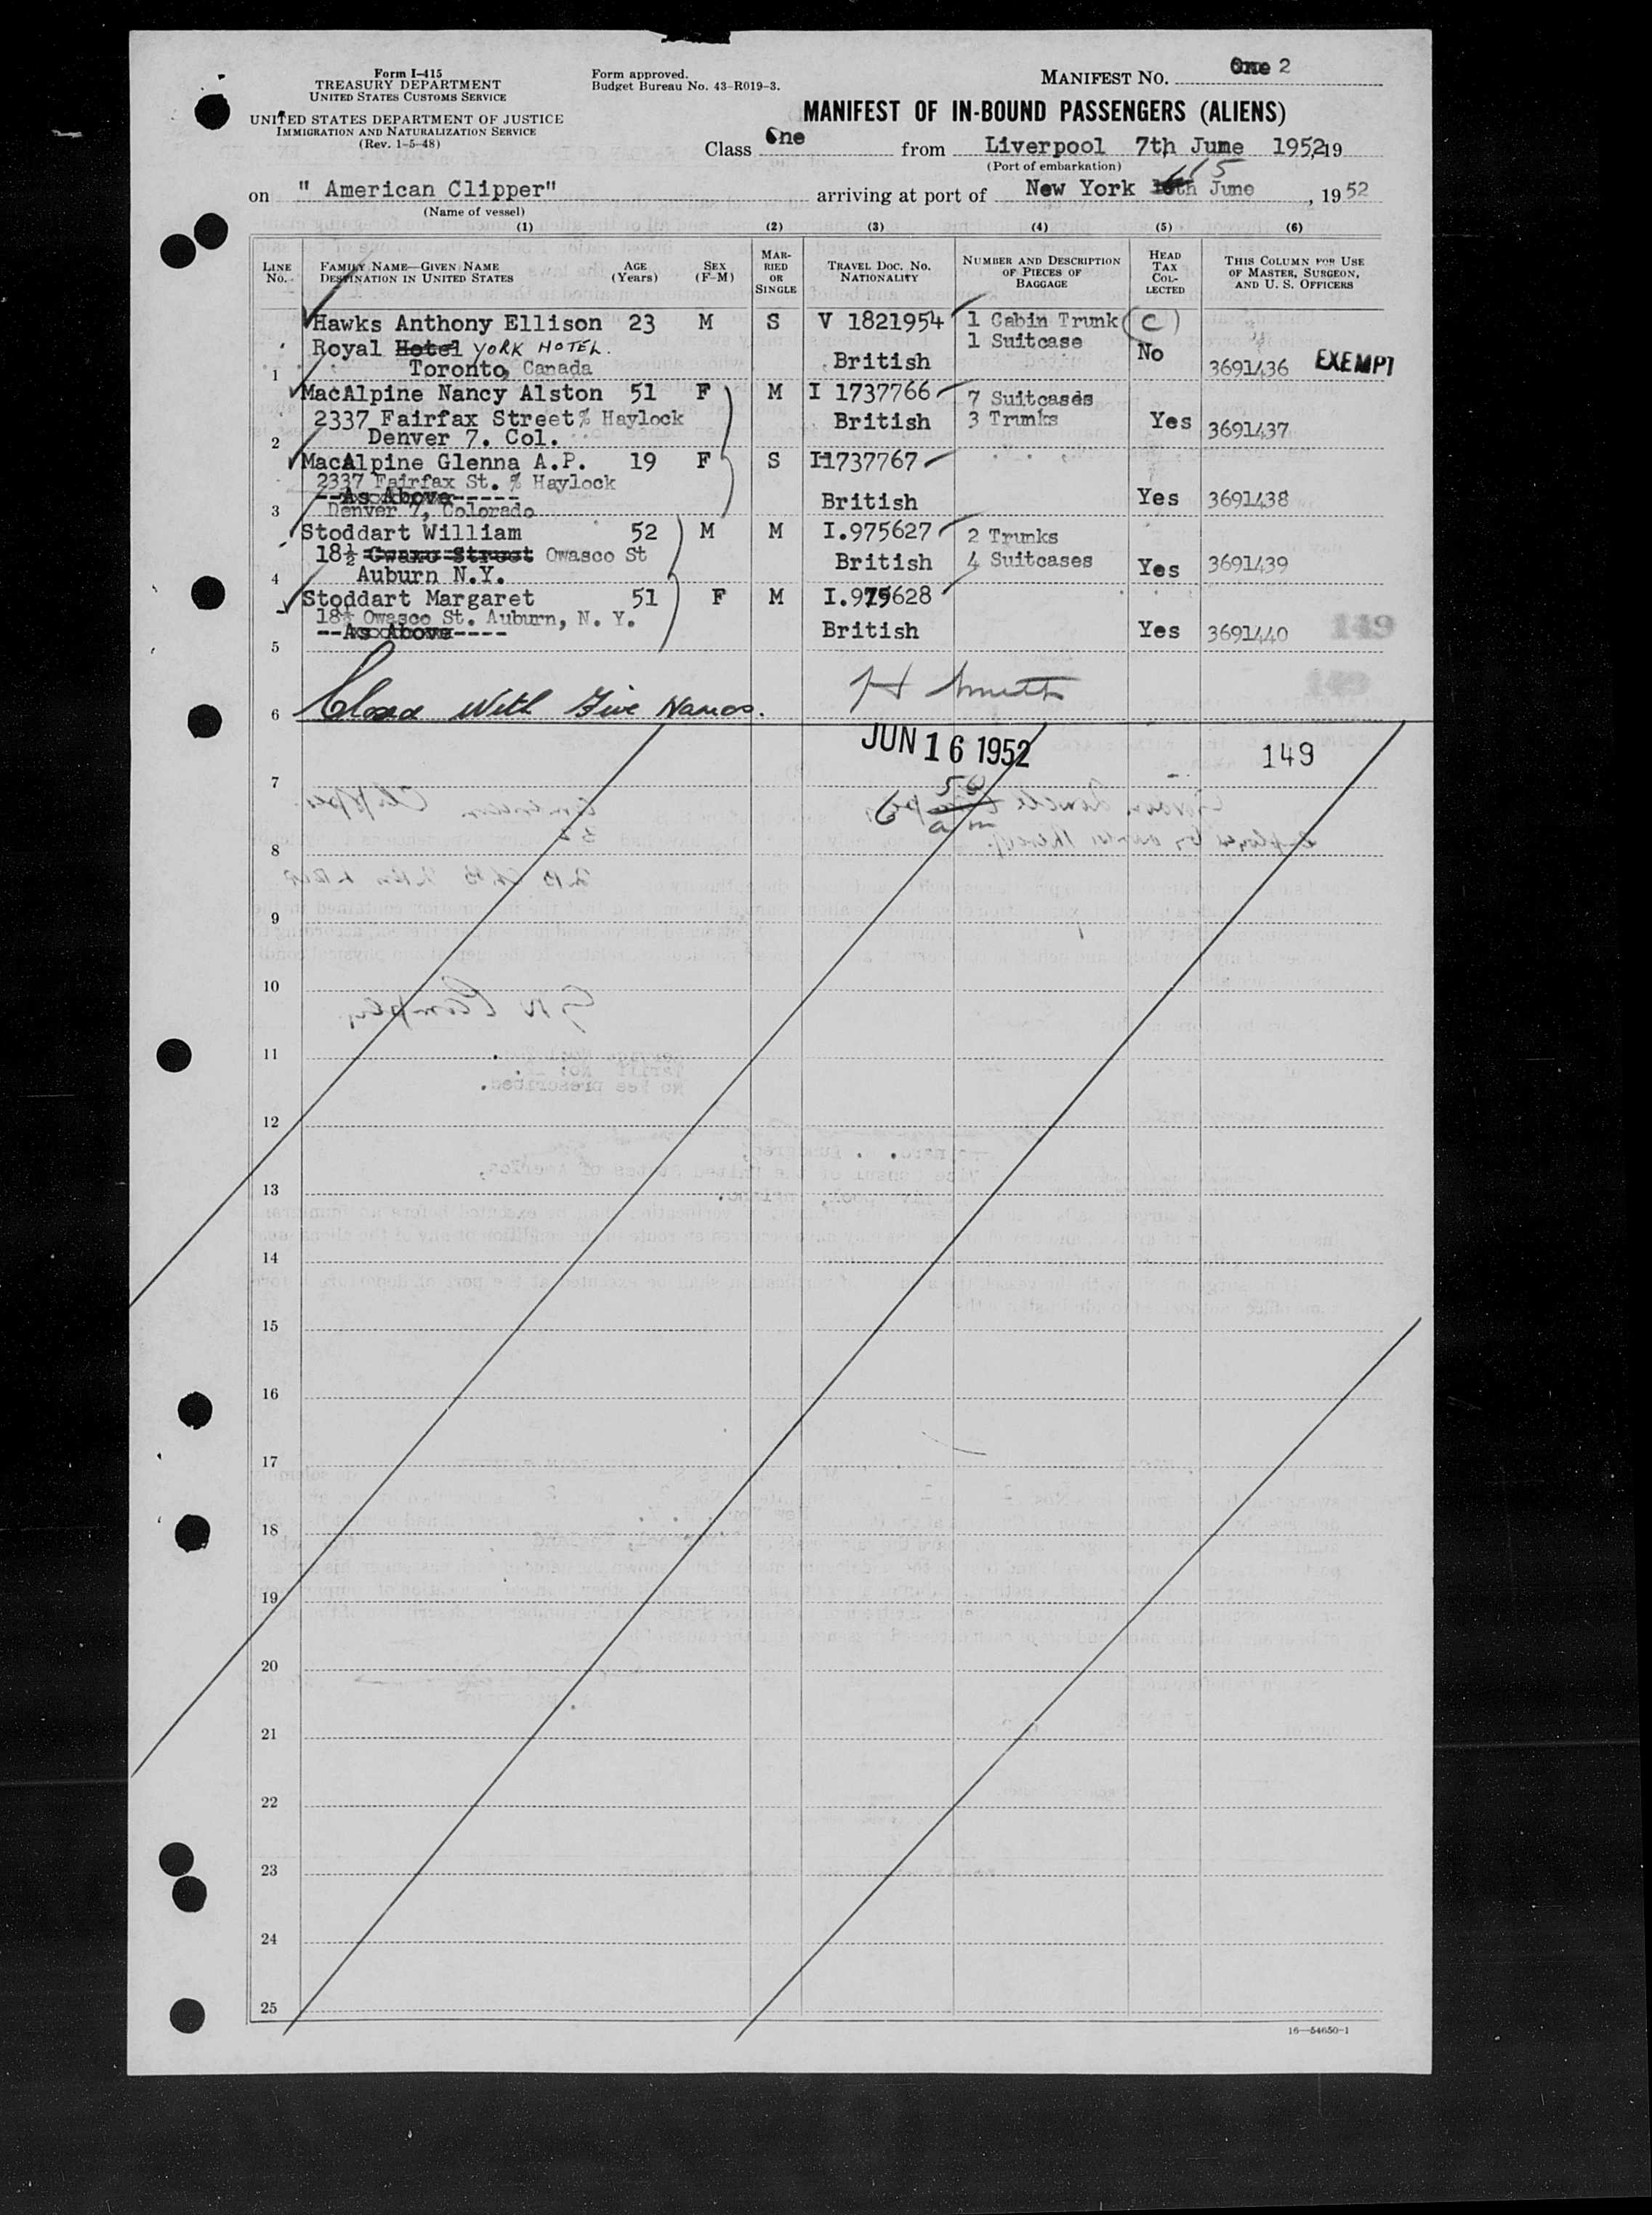 Form I-415
TREASURY DEPARTMENT
UNITED STATES CUSTOMS SERVICE
UNITED STATES DEPARTMENT OF JUSTICE
IMMIGRATION AND NATURALIZATION SERVICE
(Rev. 1-5-48)
Form approved.
Budget Bureau No. 43-R019-3.
MANIFEST NO. One 2
MANIFEST OF IN-BOUND PASSENGERS (ALIENS)
Class One from Liverpool 7th June 1952, 19
(Port of embarkation)
on " American Clipper" arriving at port of New York 16th 15 June, 1952
(Name of vessel)
(1) (2) (3) (4) (5) (6)
LINE NO.
FAMILY NAME—GIVEN NAME
DESTINATION IN UNITED STATES
AGE (Years)
SEX (F-M)
MARRIED OR SINGLE
TRAVEL DOC. NO.
NATIONALITY
NUMBER AND DESCRIPTION OF PIECES OF BAGGAGE
HEAD TAX COLLECTED
THIS COLUMN FOR USE OF MASTER, SURGEON, AND U. S. OFFICERS
Hawks Anthony Ellison 23 M S V 1821954 1 Cabin Trunk (C)
Royal Hotel YORK HOTEL. 1 Suitcase No
1 Toronto, Canada British 3691436 EXEMPT
MacAlpine Nancy Alston 51 F M I 1737766 7 Suitcases
2337 Fairfax Street % Haylock British 3 Trunks Yes 3691437
2 Denver 7. Col.
MacAlpine Glenna A.P. 19 F S I1737767
2337 Fairfax St. % Haylock
--As Above----- British Yes 3691438
3 Denver 7, Colorado
Stoddart William 52 M M I.975627 2 Trunks
18½ Owaxo Street Owasco St British 4 Suitcases Yes 3691439
4 Auburn N.Y.
Stoddart Margaret 51 F M I.975628
18½ Owasco St. Auburn, N. Y.
--As Above---- British Yes 3691440 149
5
6 Closed With Five Names. H Smith
JUN 16 1952 149
7
8
9
10
11
12
13
14
15
16
17
18
19
20
21
22
23
24
25
16—54650-1